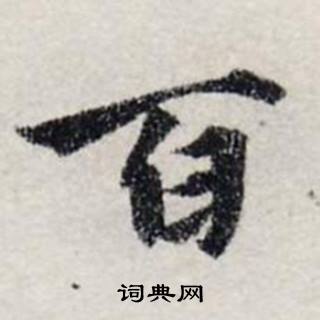 百
词典网